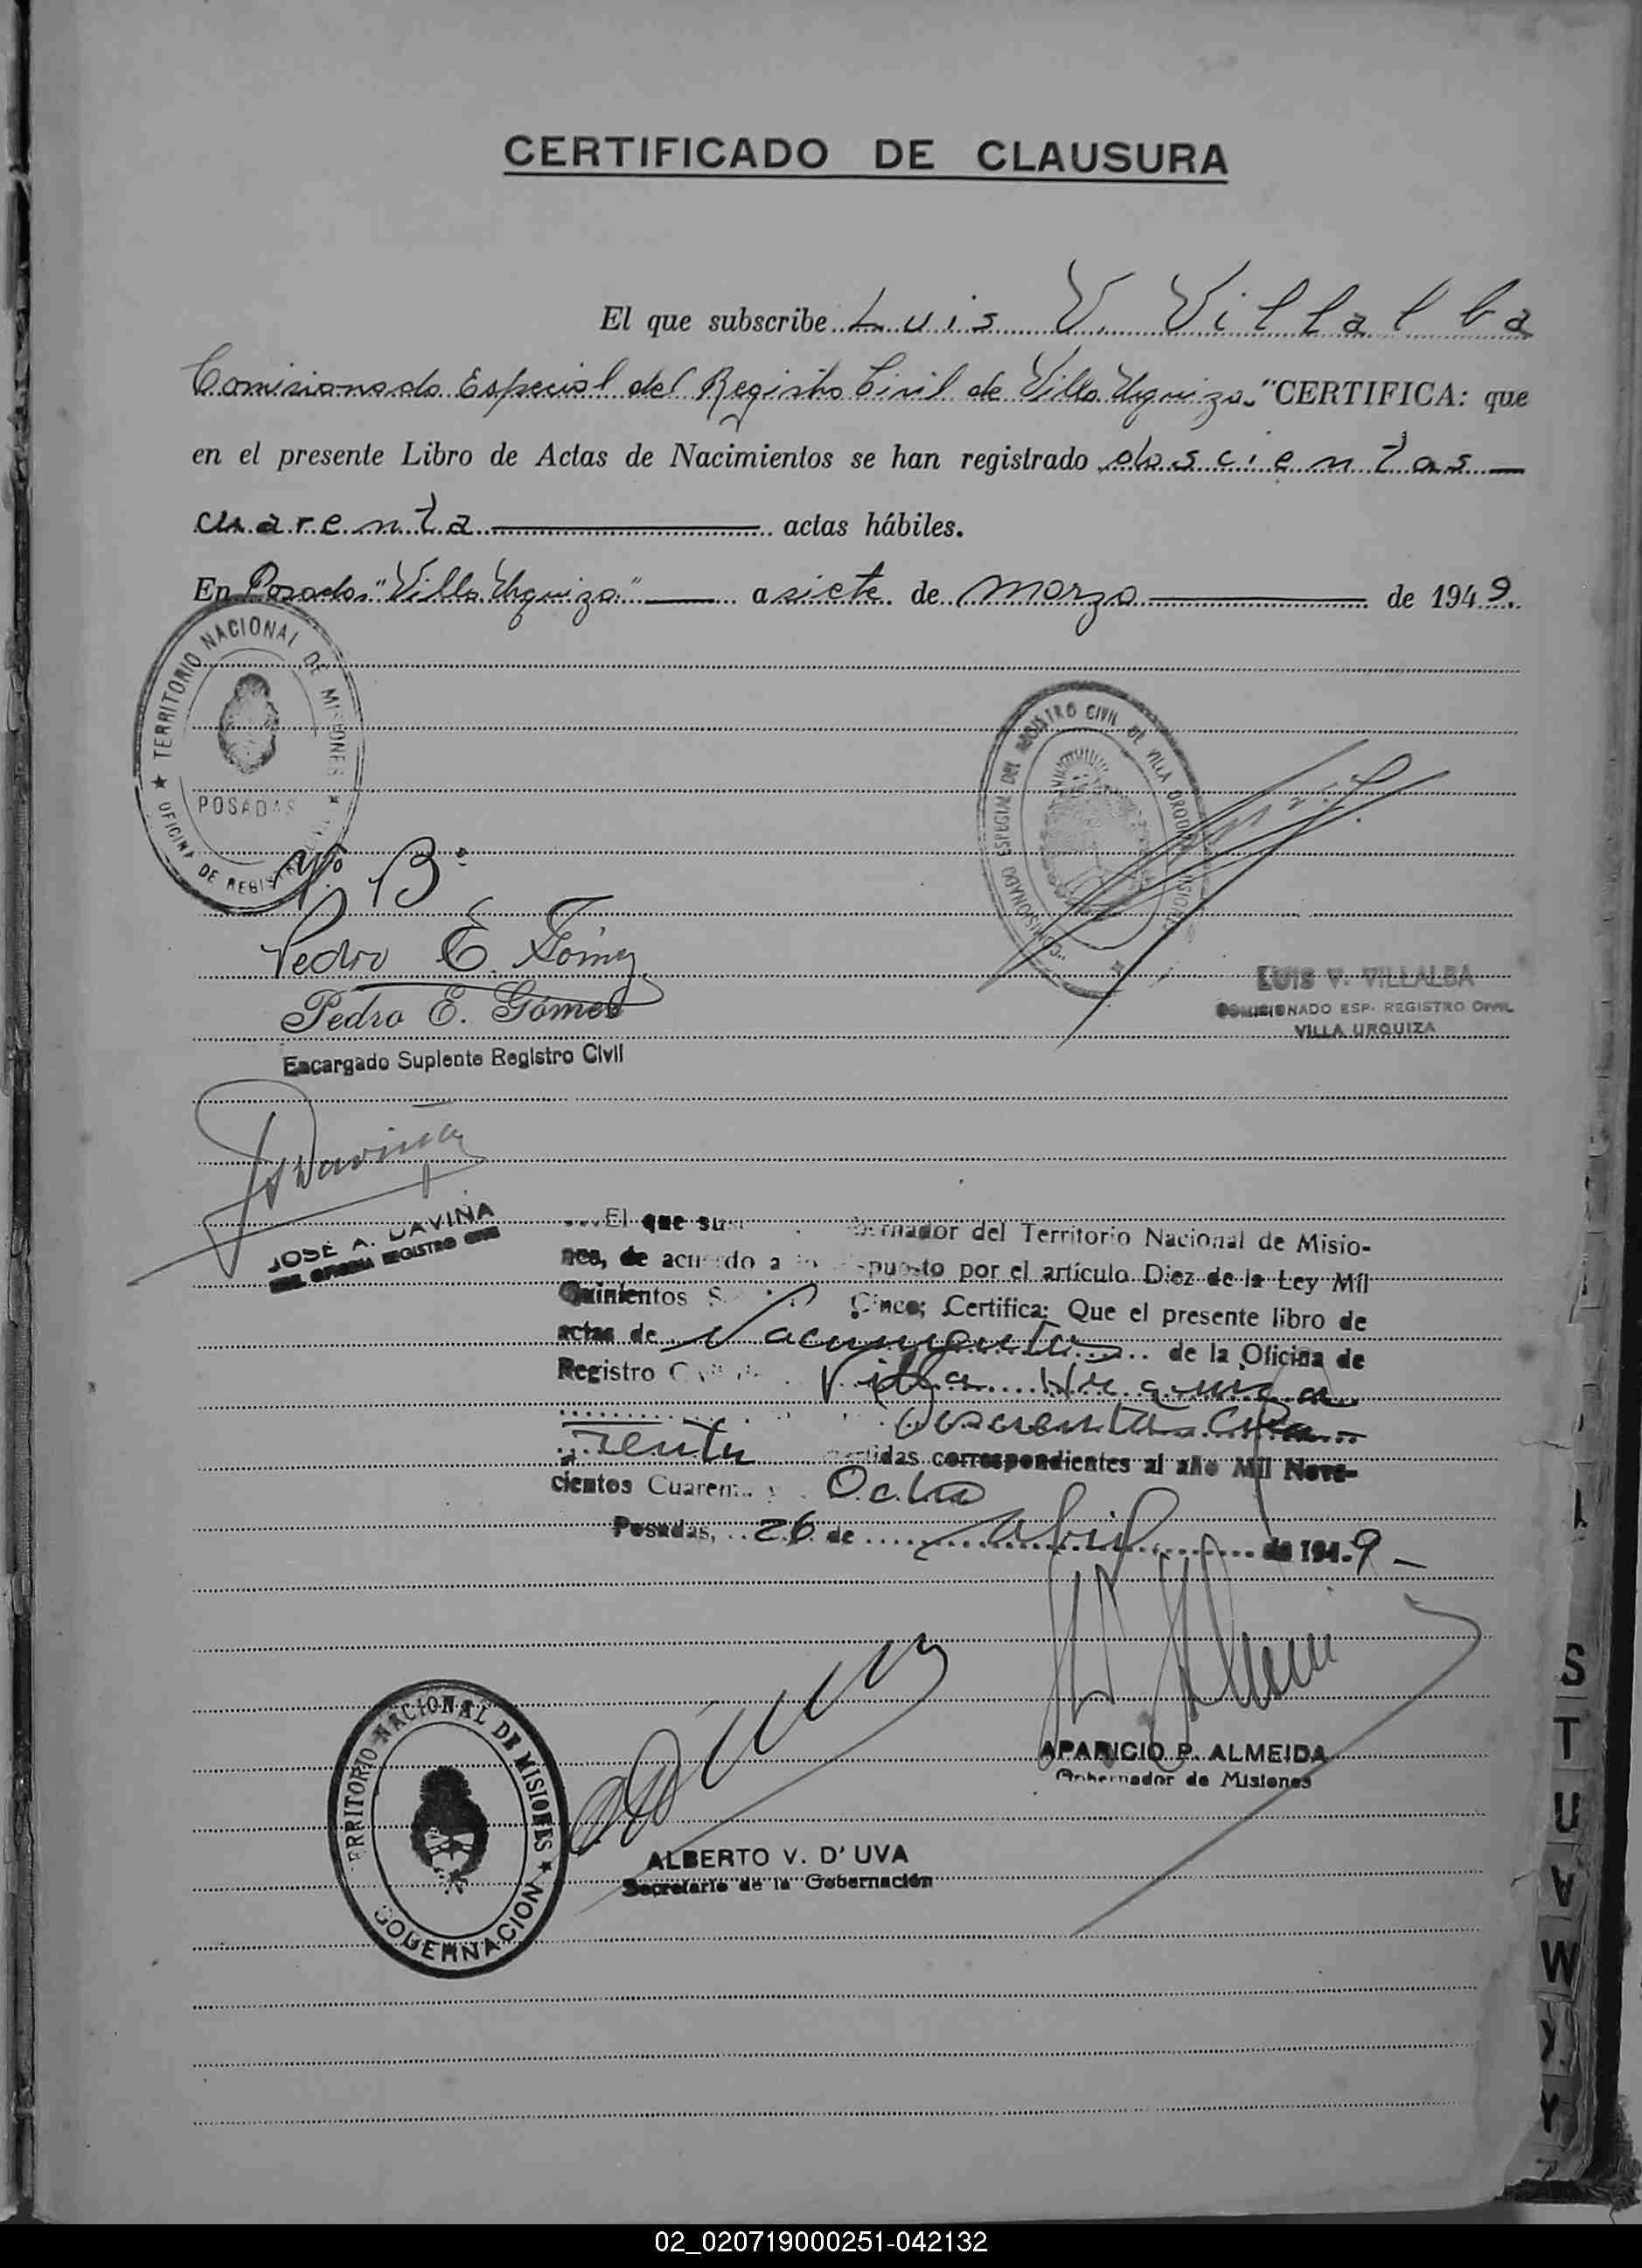 CERTIFICADO DE CLAUSURA
El que subscribe Luis V. Villalba
Comisionado Especial del Registro Civil de Villa Urquiza "CERTIFICA: que
en el presente Libro de Actas de Nacimientos se han registrado doscientas
cuarenta actas hábiles.
En Posadas "Villa Urquiza" a siete de marzo de 1949.
★ TERRITORIO NACIONAL DE MISIONES ★
POSADAS
OFICINA DE REGISTRO
COMISIONADO ESPECIAL DEL REGISTRO CIVIL DE VILLA URQUIZA MISIONES
Vº Bº
Pedro E. Gómez
Pedro E. Gómez
Encargado Suplente Registro Civil
LUIS V. VILLALBA
COMISIONADO ESP. REGISTRO CIVIL
VILLA URQUIZA
JDaviña
JOSE A. DAVIÑA
OFICINA REGISTRO CIVIL
El que sus bernador del Territorio Nacional de Misio-
nes, de acuerdo a lo dispuesto por el artículo Diez de la Ley Mil
Quinientos S Cinco; Certifica: Que el presente libro de
actas de Nacimientos de la Oficina de
Registro Civil de Villa Urquiza
doscientas cua-
renta partidas correspondientes al año Mil Nove-
cientos Cuarenta y Ocho
Posadas, 26 de Abril de 1949
APARICIO P. ALMEIDA
Gobernador de Misiones
TERRITORIO NACIONAL DE MISIONES ★
GOBERNACION
ALBERTO V. D'UVA
Secretario de la Gobernación
S
T
U
V
W
X
Y
Z
02_020719000251-042132